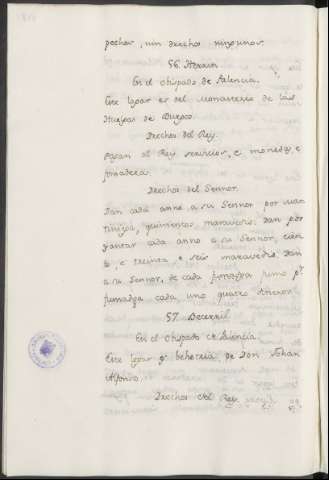 pechos, nin derechos ningunos.
56. Herrin
En el Obispado de Palencia.
Este logar es del Monasterio de las
Huelgas de Burgos.
Derechos del Rey.
Pagan al Rey servicios, e monedas, e
fonsadera.
Derechos del Sennor.
Dan cada anno a su Sennor por mar
tiniega, quinientos maravedis: dan por
yantar cada anno a su Sennor, cien
to, e treinta, e seis maravedis. Dan
a su Sennor, de cada fumadga fumo pr.
fumadga cada uno quatro dineros
57. Becerril
En el Obispado de Palencia.
Este logar es behetria, de Don Johan
Alfonso.
Derechos del Rey.